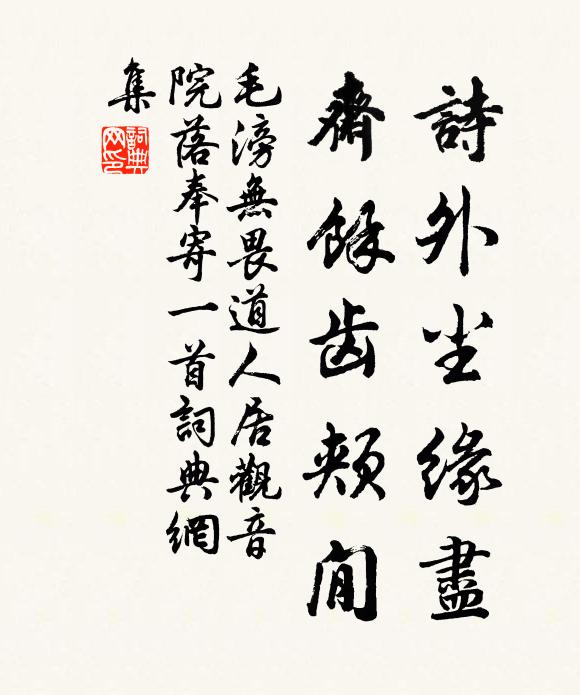 詩外尘緣盡
齋餘齿頰間
毛滂無畏道人居觀音
院落奉寄一首詞典網
集
詞典网印